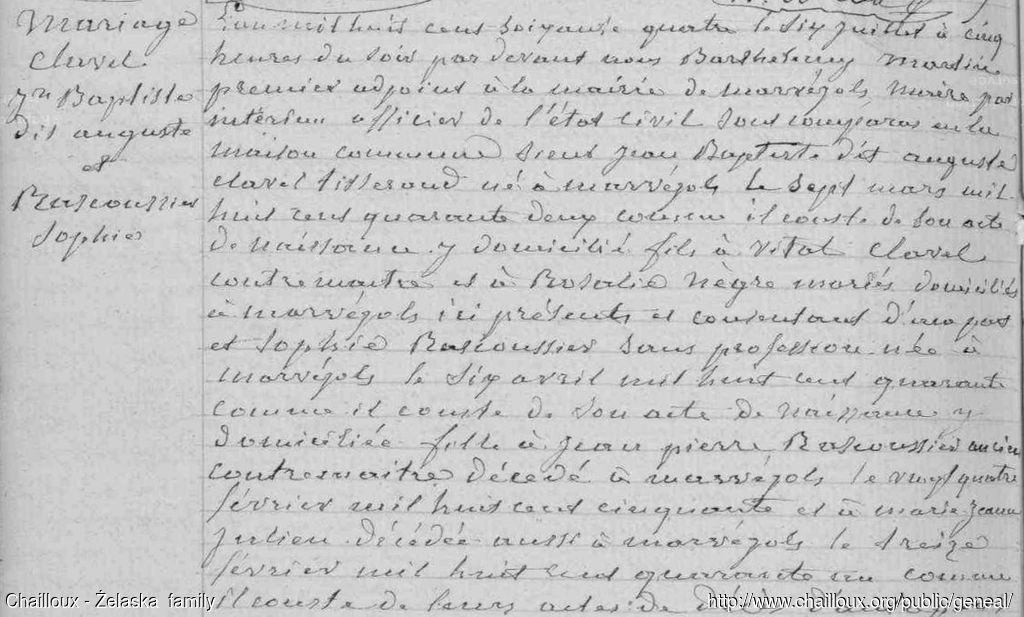 Mariage
Clavel
Jn Baptiste
dit auguste
et
Rascoussier
Sophie
L'an mil huit cent soixante quatre le six juillet à cinq
heures du soir par devant nous Barthelemy Martin
premier adjoint à la mairie de marvéjols, maire par
intérim officier de l'état civil sont comparus en la
maison commune Sieur Jean Baptiste dit auguste
Clavel tisserand né à marvéjols le sept mars mil
huit cent quarante deux comme il conste de son acte
de naissance y domicilié fils à vital Clavel
contremaitre et à Rosalie Nègre mariés domiciliés
à marvéjols ici présents et consentant d'une part
et Sophie Rascoussier sans profession née à
marvéjols le six avril mil huit cent quarante
comme il conste de son acte de naissance y
domiciliée fille à Jean pierre Rascoussier ancien
contremaitre décédé à marvéjols le vingt quatre
février mil huit cent cinquante et à marie Jeanne
Julien décédée aussi à marvéjols le treize
février mil huit cent quarante un comme
il conste de leurs actes de décès
Chailloux - Želaska family
http://www.chailloux.org/public/geneal/